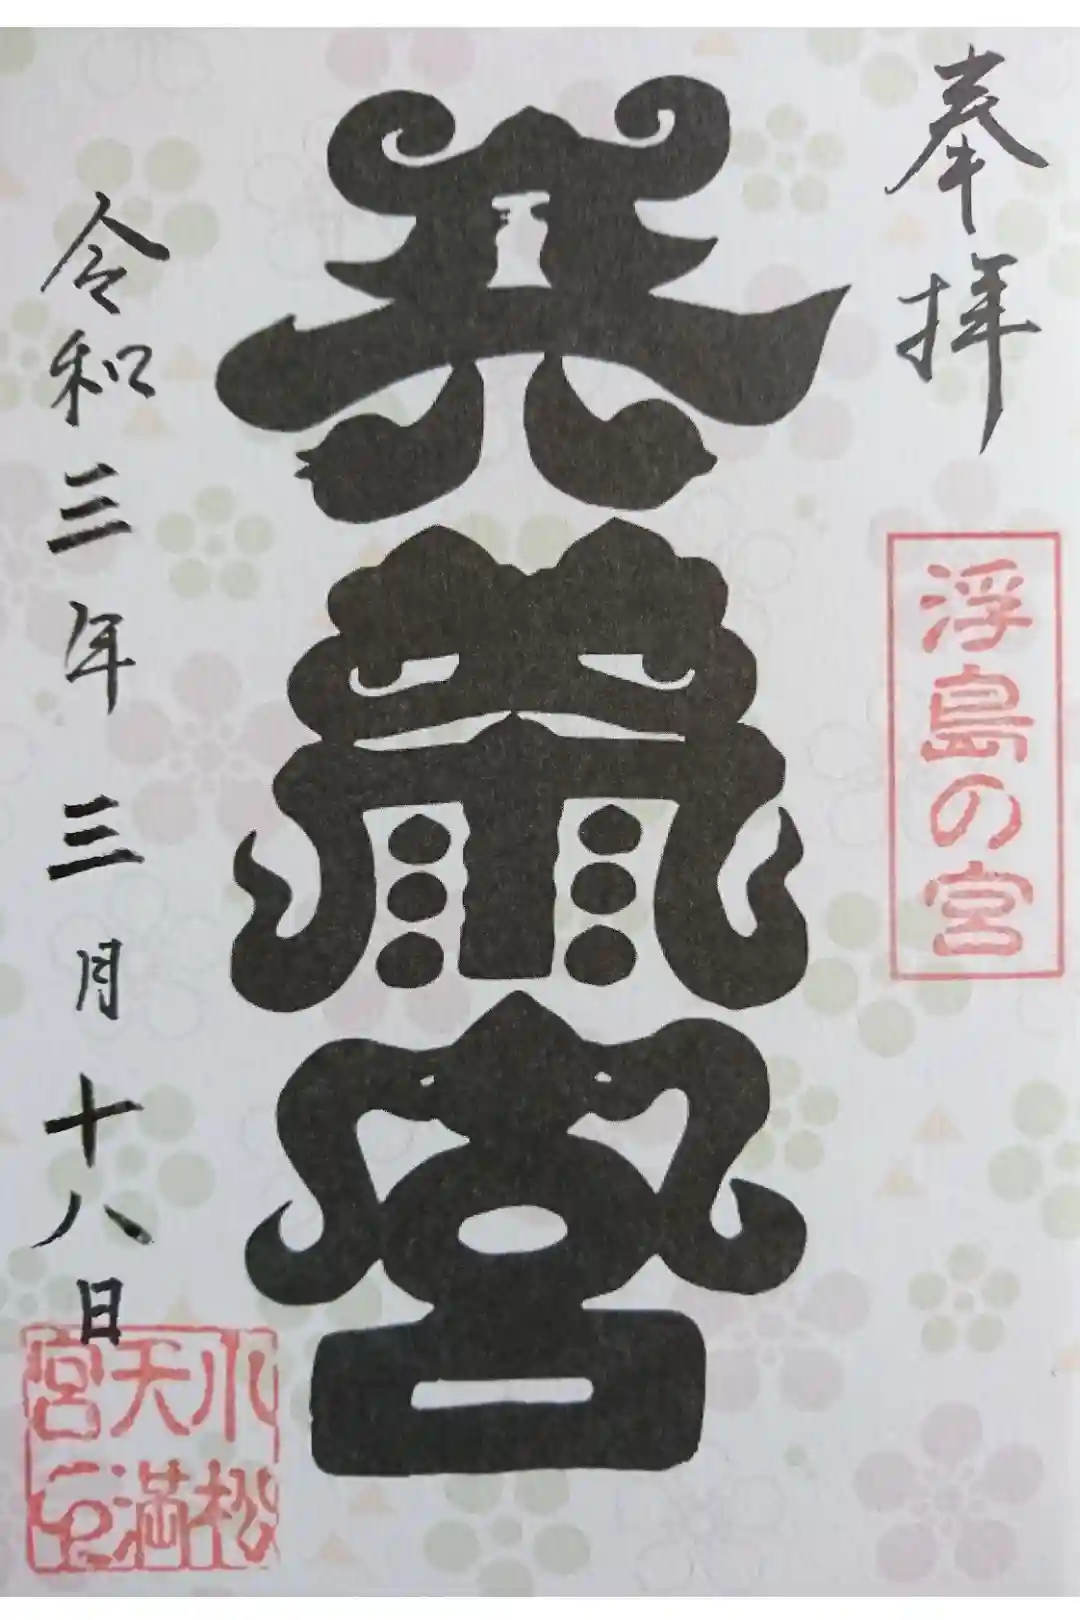 奉拝
浮島の宮
天満宮
令和三年 三月十八日
小松
天満
宮印